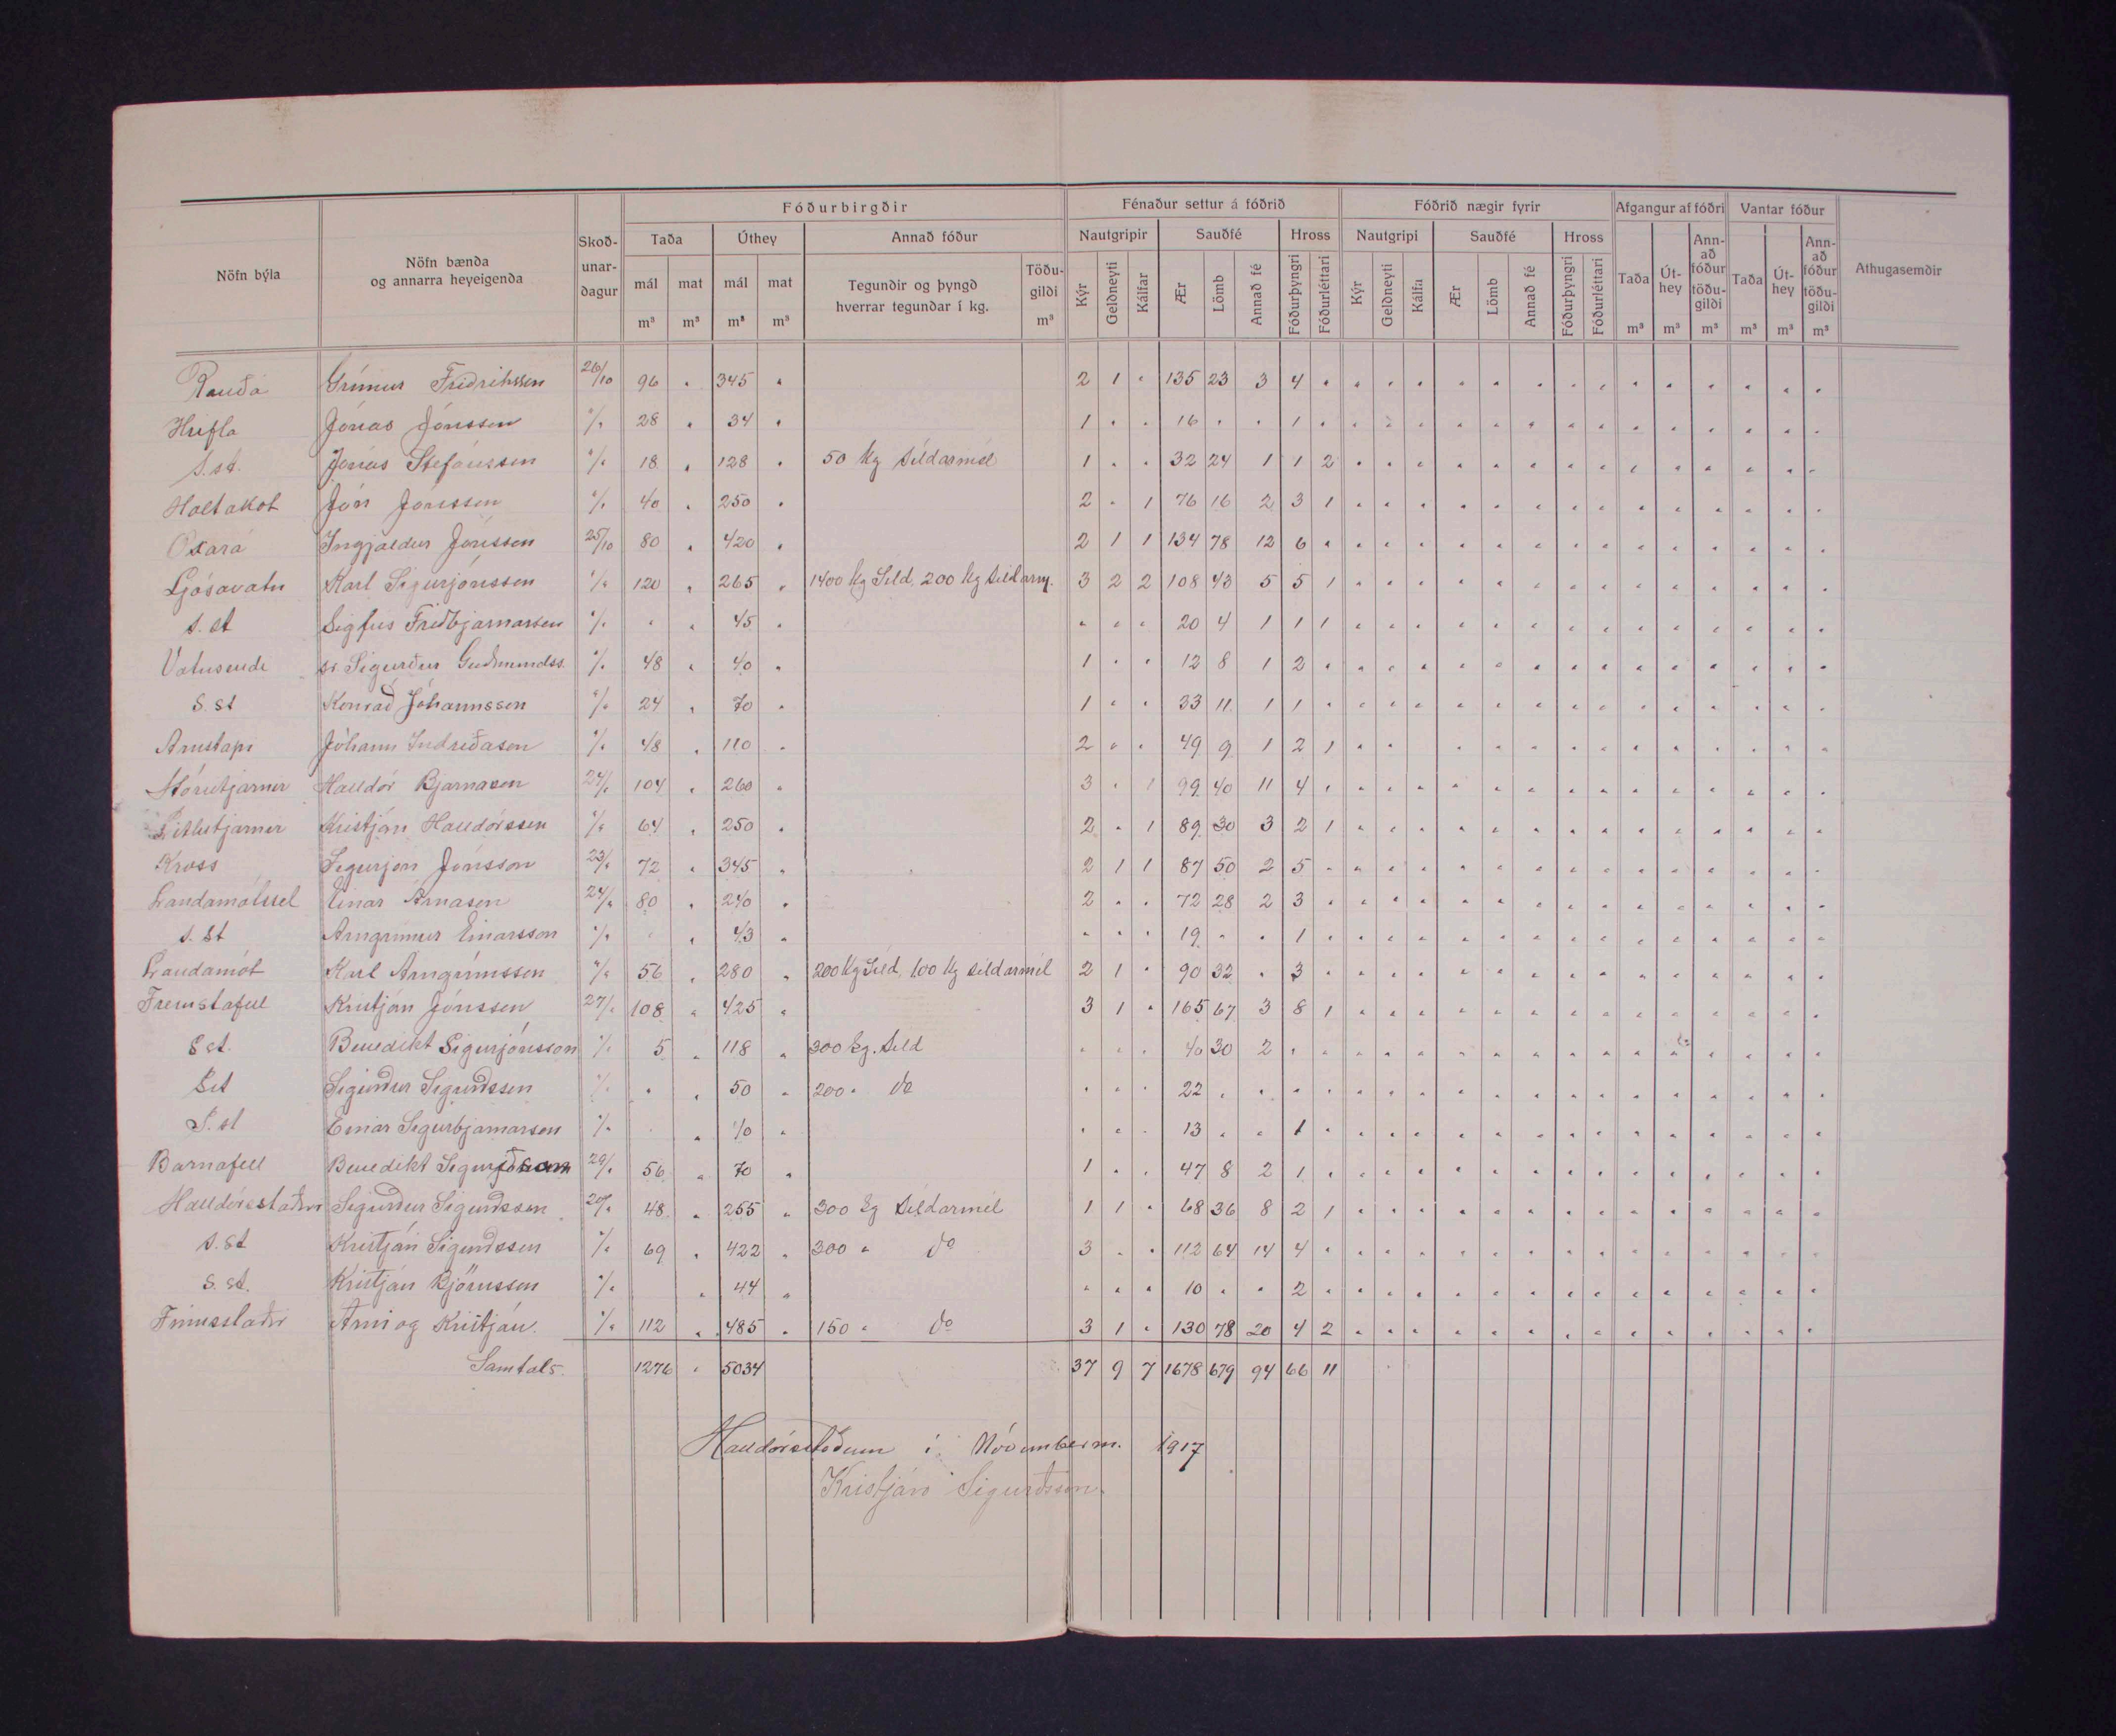 Fóðurbirgðir Fénaður settur á fóðrið Fóðrið nægir fyrir Afgangur af fóðri Vantar fóður
Nöfn býla Nöfn bænda og annarra heyeigenda Skoð-unar-dagur Taða Úthey Annað fóður Nautgripir Sauðfé Hross Nautgripi Sauðfé Hross Taða Út-hey Ann-að fóður töðu-gildi Taða Út-hey Ann-að fóður töðu-gildi Athugasemdir
mál mat mál mat Tegundir og þyngd hverrar tegundar í kg. Töðu-gildi Kýr Geldneyti Kálfar Ær Lömb Annað fé Fóðurþyngri Fóðurléttari Kýr Geldneyti Kálfa Ær Lömb Annað fé Fóðurþyngri Fóðurléttari
m³ m³ m³ m³ m³ m³ m³ m³ m³ m³ m³
Rauðá Grímur Friðrikssen 26/10 96 " 345 " 2 1 " 135 23 3 4 "
Hrifla Jónas Jónssen "/" 28 " 34 " 1 " " 16 " " 1 "
S.st. Jónas Stefánssen "/" 18 " 128 " 50 kg síldarmél 1 " " 32 24 1 1 2
Holtakot Jón Jónssen "/" 40 " 250 " 2 " 1 76 16 2 3 1
Oxará Ingjaldur Jónssen 25/10 80 " 420 " 2 1 1 134 78 12 6 "
Ljósavatn Karl Sigurjónssen "/" 120 " 265 " 1400 kg Síld, 200 kg síldarm. 3 2 2 108 43 5 5 1
S. st Sigfus Friðbjarnarsen "/" " " 45 " " " " 20 4 1 1 1
Vatnsende sr. Sigurður Guðmundss. "/" 48 " 40 " 1 " " 12 8 1 2 "
S. st Konrað Jóhannssen "/" 24 " 70 " 1 " " 33 11 1 1 "
Arnstapi Jóhann Indriðasen "/" 48 " 110 " 2 " " 49 9 1 2 1
Stórutjarnir Halldór Bjarnasen 24/" 104 " 260 " 3 " 1 99 40 11 4 "
Litlutjarnir Kristján Halldórssen "/" 64 " 250 " 2 " 1 89 30 3 2 1
Kross Sigurjón Jónsson 23/" 72 " 345 " 2 1 1 87 50 2 5 "
Landamótssel Einar Árnasen 24/" 80 " 240 " 2 " " 72 28 2 3 "
S. st Arngrímur Einarsson "/" " " 43 " " " " 19 " " 1 "
Landamót Karl Arngrímssen "/" 56 " 280 " 200 kg Síld, 100 kg síldarmél 2 1 " 90 32 " 3 "
Fremstafell Kristján Jónssen 27/" 108 " 425 " 3 1 " 165 67 3 8 1
S st. Benedikt Sigurjónsson "/" 5 " 118 " 300 kg. síld " " " 40 30 2 " "
S st Sigurður Sigurdssen "/" " " 50 " 200 " do " " " 22 " " " "
S. st Einar Sigurbjarnarsen "/" " " 40 " " " " 13 " " 1 "
Barnafell Benedikt Sigurjónsson 29/" 56 " 70 " 1 " " 47 8 2 1 "
Halldórsstaðir Sigurður Sigurdssen 20/" 48 " 255 " 300 kg síldarmél 1 1 " 68 36 8 2 1
S. st Kristján Sigurdssen "/" 69 " 422 " 300 " do 3 " " 112 64 14 4 "
S. st. Kristján Björnssen "/" " 44 " " " " 10 " " 2 "
Finnsstaðir Árni og Kristján. "/" 112 " 485 " 150 " do 3 1 " 130 78 20 4 2
Samtals. 1276 " 5034 37 9 7 1678 679 94 66 11
Halldórsstöðum í Nóvemberm. 1917
Kristján Sigurðsson